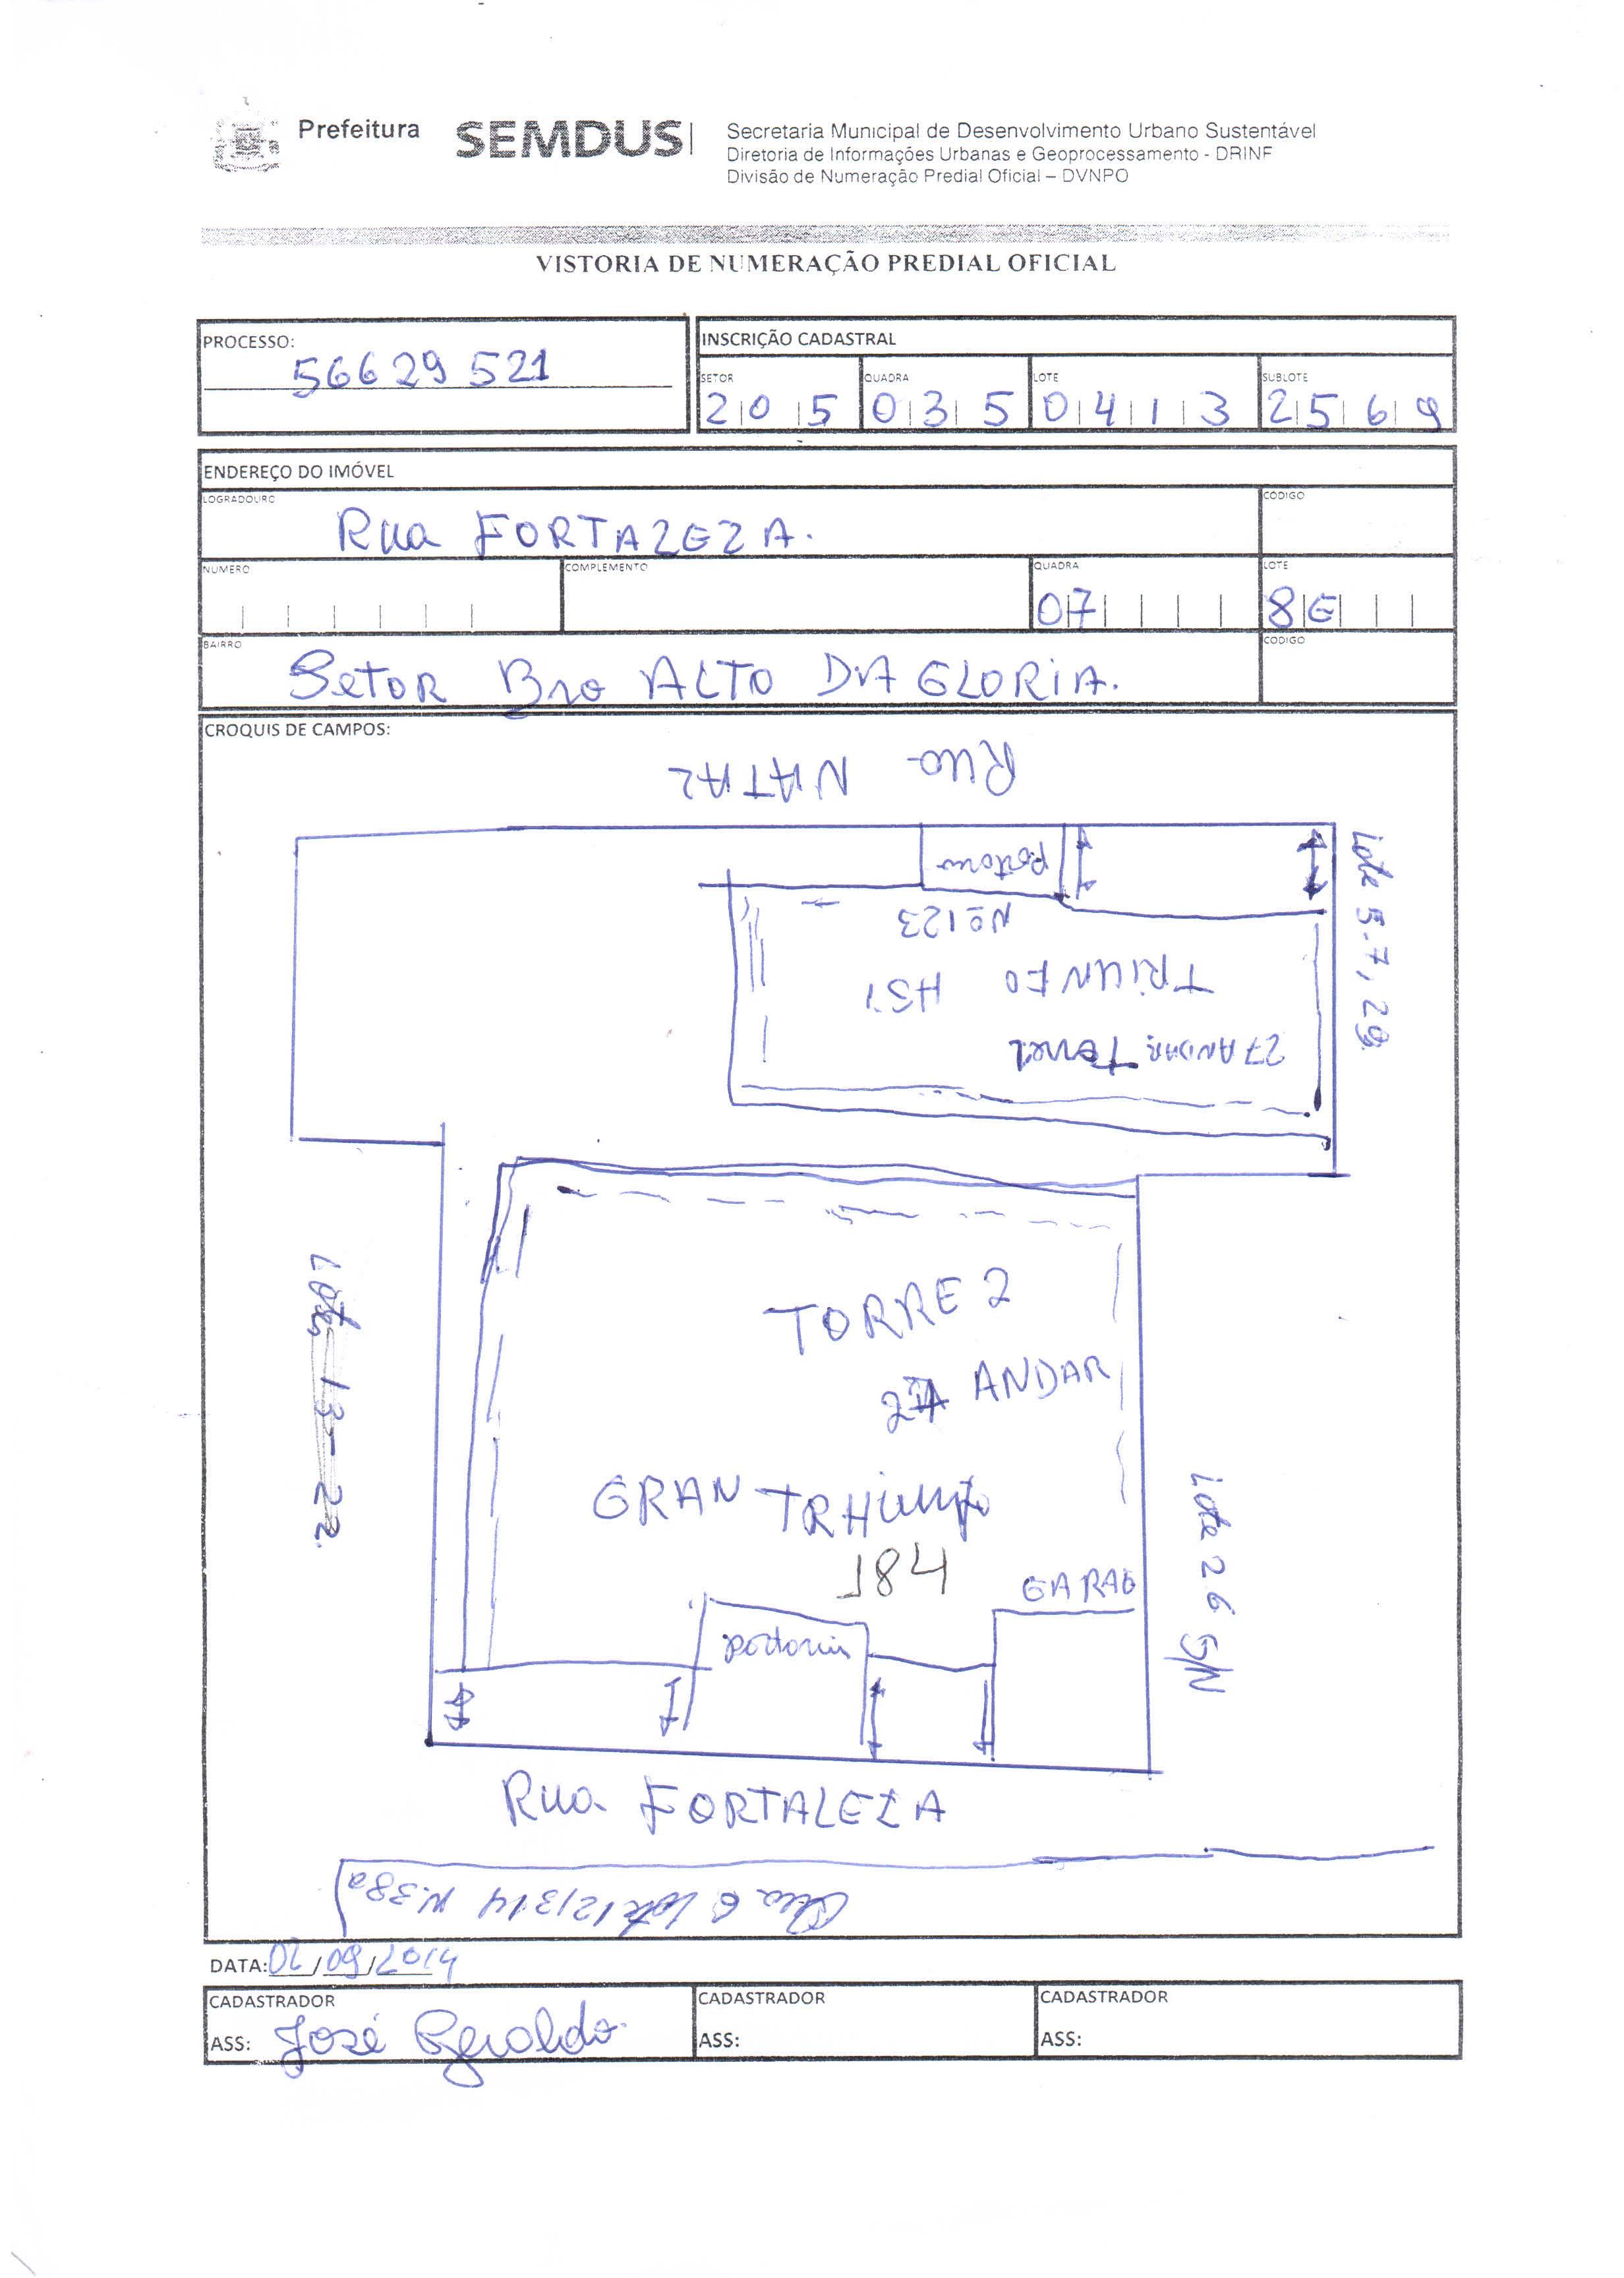 Prefeitura
SEMDUS
Secretaria Municipal de Desenvolvimento Urbano Sustentável
Diretoria de Informações Urbanas e Geoprocessamento - DRINF
Divisão de Numeração Predial Oficial – DVNPO
VISTORIA DE NUMERAÇÃO PREDIAL OFICIAL
PROCESSO:
56629 521
INSCRIÇÃO CADASTRAL
SETOR QUADRA LOTE SUBLOTE
205 035 0413 2569
ENDEREÇO DO IMÓVEL
LOGRADOURO CÓDIGO
Rua FORTAZEZA.
NUMERO COMPLEMENTO QUADRA LOTE
07 8E
BAIRRO CODIGO
Setor Bro ALTO DA GLORIA.
CROQUIS DE CAMPOS:
Rua NATAL
Portaria
Nº 123
TRIUNFO
27 ANDAR
Lote 5-7, 29
TORRE 2
ANDAR
GRAN
184
GARAG
Portaria
Lote 13-22.
Lote 26 S/N
Rua FORTALEZA
lote 12/314
DATA: 02/09/2014
CADASTRADOR CADASTRADOR CADASTRADOR
ASS: José Geraldo ASS: ASS: